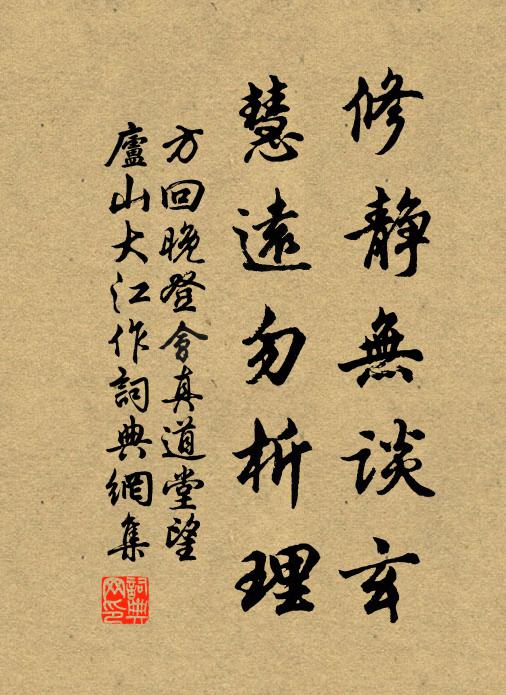 修静無談玄
慧遠勿析理
方回晚登會真道堂望
廬山大江作詞典網集
詞典
网印